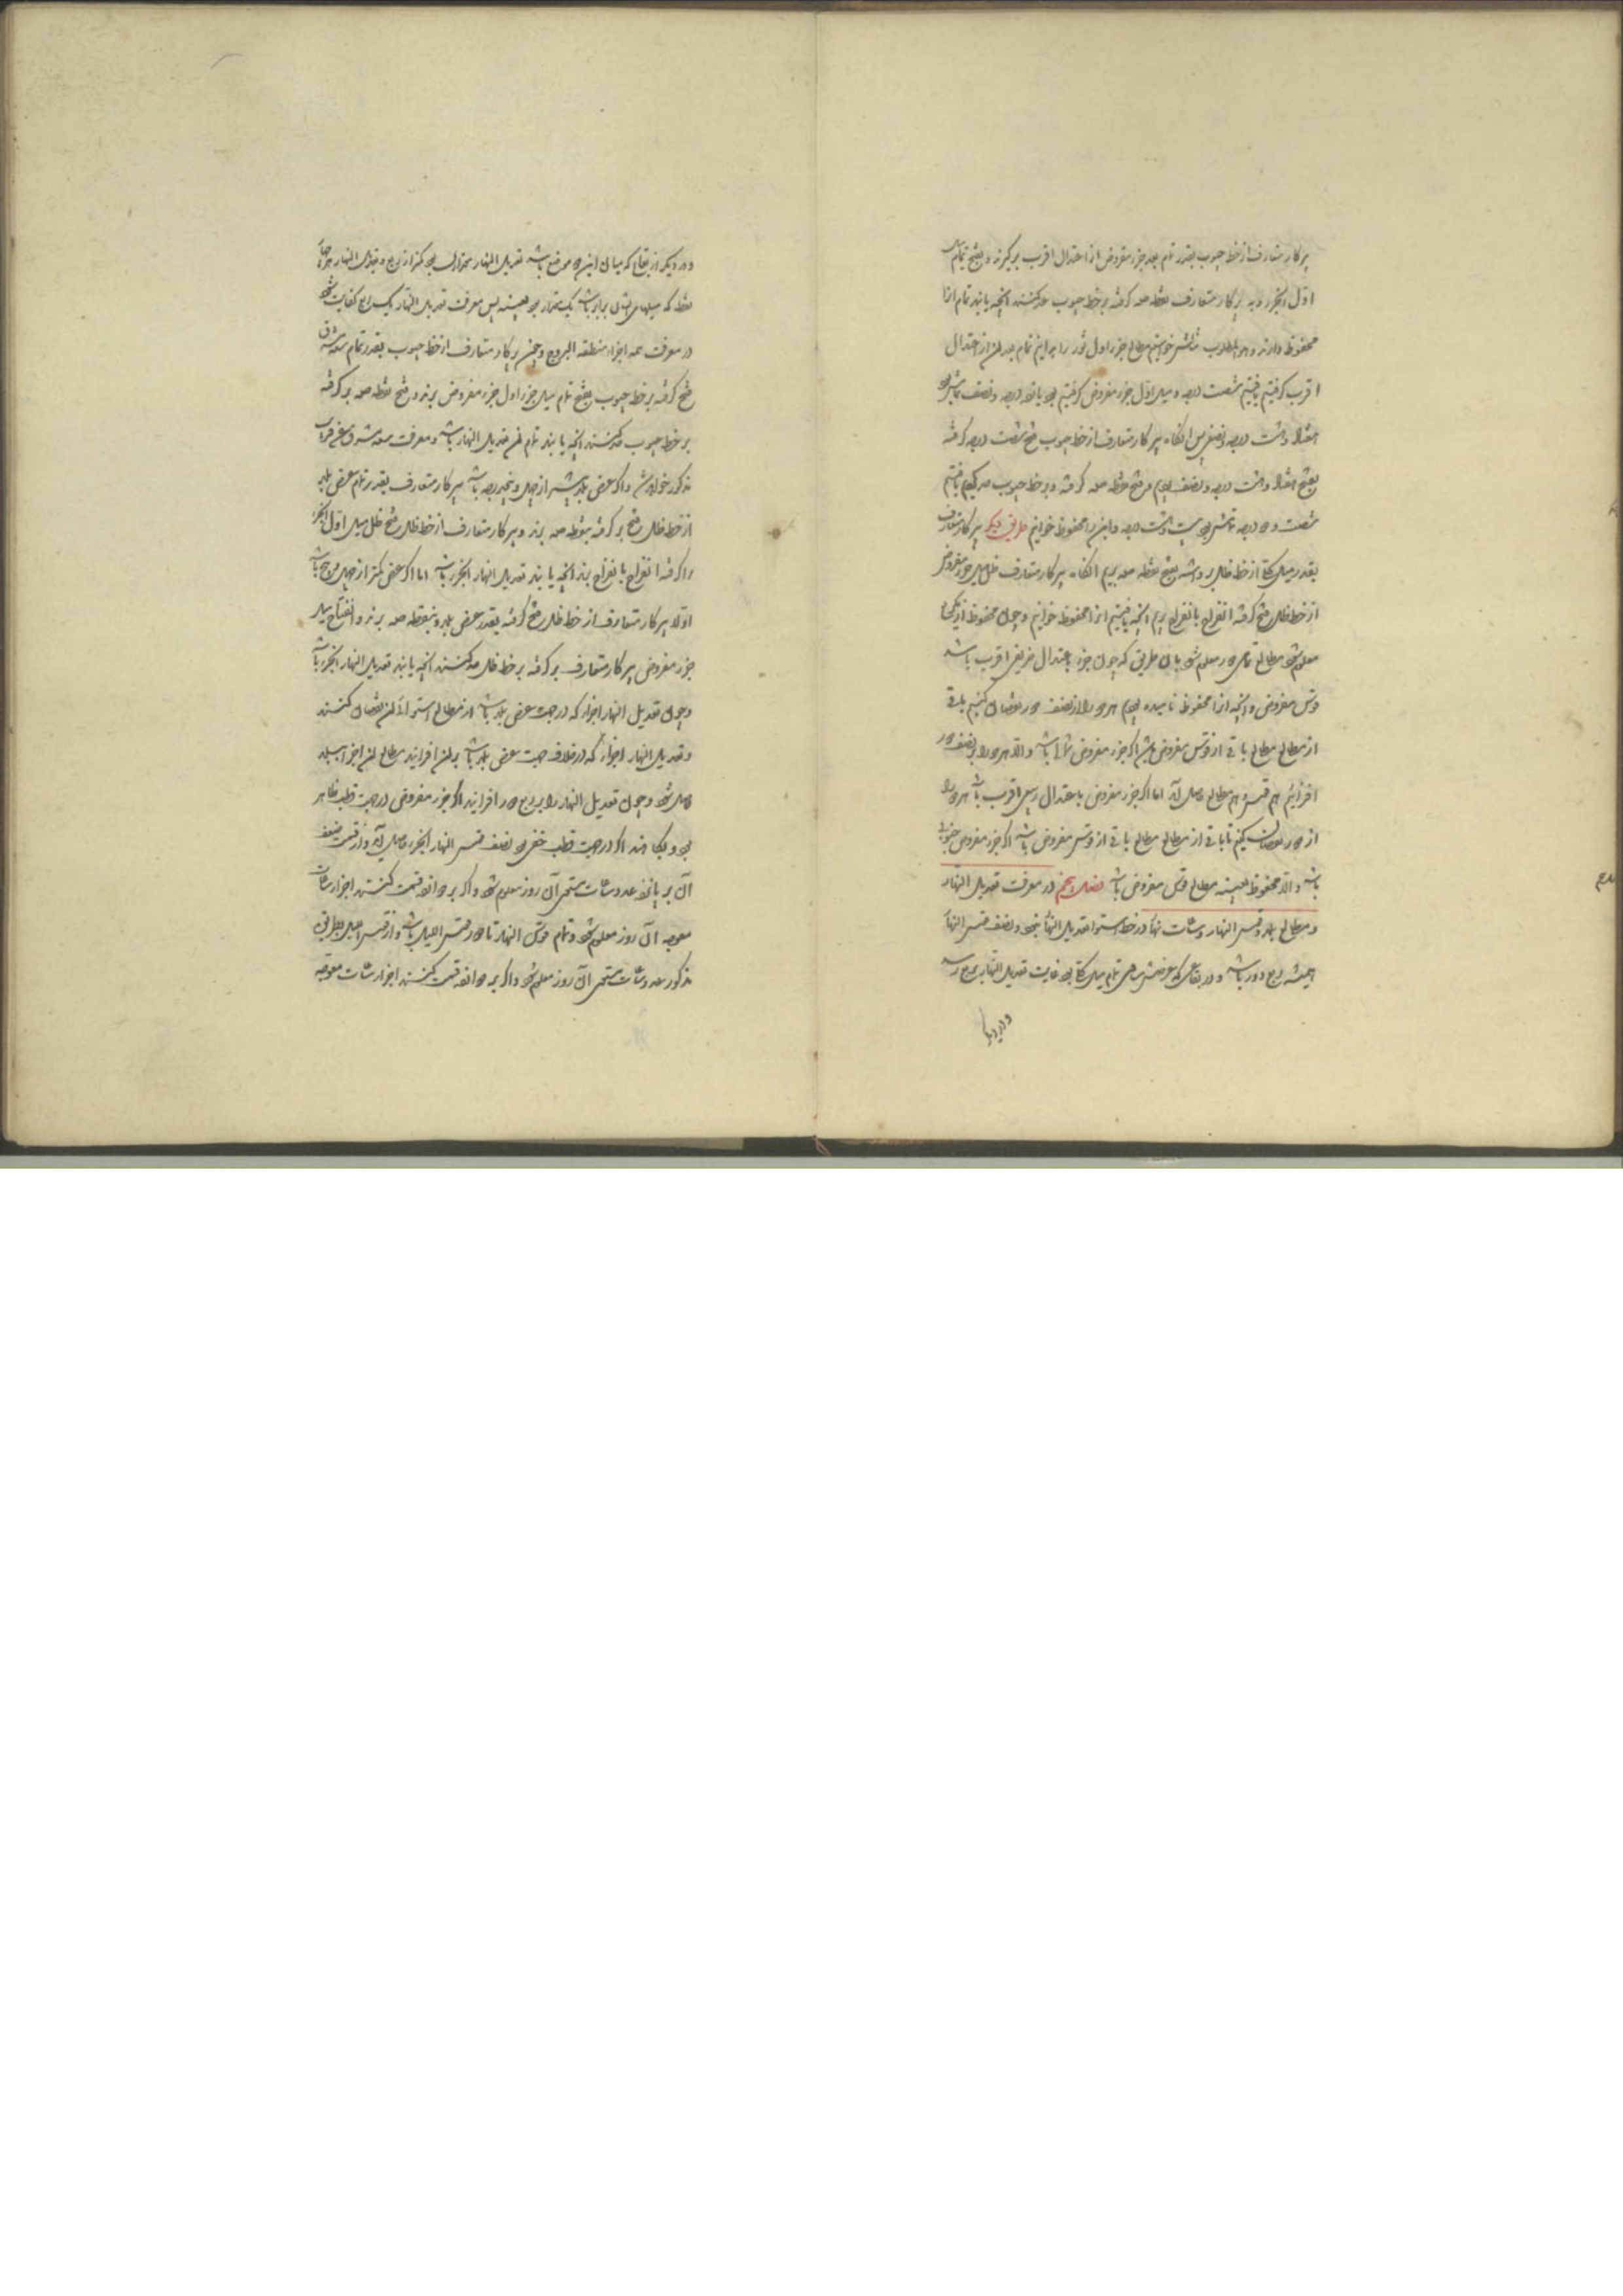 پرکار متعارف از خط جیوب بقدر تمام بعد جزء مفروض از اعتدال اقرب برگیرند و بفتح تمام میل
اول آنجزو به پرکار متعارف نقطه صه گرفته بر خط جیوب صه کنند آنچه یابند تمام آنرا
محفوظ دارند و هو المطلوب مثالش خواستیم مطالع جزء اول ثور را بنابراین تمام بعد آن از اعتدال
اقرب گرفتیم یافتیم شصت درجه و میل اول جزء مفروض گرفتیم یازده درجه و نصف تمامش
هفتاد و هشت درجه و نصف پس آنگاه پرکار متعارف از خط جیوب فتح شصت درجه گرفته
بفتح هفتاد و هشت درجه و نصف بردیم فتح نقطه صه گرفته و بر خط جیوب صه کردیم یافتیم
شصت و دو درجه تمامش بیست و هشت درجه و این را محفوظ خوانیم طریق دیگر پرکار متعارف
بقدر میل کلی از خط ظل برداشته بفتح نقطه صه بریم آنگاه پرکار متعارف ظل میل جزء مفروض
از خط ظل فتح گرفته انفراج بانفراج بریم آنچه یافتیم آنرا محفوظ خوانیم و چون محفوظ از یکی
معلوم شود مطالع تمامی دور معلوم شود بآن طریق که چون جزء باعتدال خریفی اقرب باشد
قوس مفروض و آنچه آنرا محفوظ نامیده بودیم هر دو را از نصف دور نقصان کنیم باقی
از مطالع مطالع باقی از قوس مفروض باشد اگر جزء مفروض شمالی باشد و الا هر دو را بر نصف دور
افزائیم هم قوس و هم مطالع حاصل آید اما اگر جزء مفروض باعتدال ربیعی اقرب باشد هر دو را
از دور نقصان کنیم تا باقی از مطالع مطالع باقی از قوس مفروض باشد اگر جزء مفروض جنوبی
باشد و الا محفوظ بعینه مطالع قوس مفروض باشد فصل پنجم در معرفت تعدیل النهار
و مطالع بلد و قوس النهار و ساعات نهار در خط استوا تعدیل النهار نبود و نصف قوس النهار
همیشه ربع دور باشد و در بقاعی که عرضش مساوی تمام میل کلی بود غایت تعدیل النهار بربع رسد
و در دیگر
و در دیگر از بقاع که میان این دو موضع باشد تعدیل النهار بمقداری بود کمتر از ربع و تعدیل النهار هر چهار
نقطه که میلهای ایشان برابر باشد یک مقدار بود بعینه پس معرفت تعدیل النهار یک ربع کفایت شود
در معرفت همه اجزاء منطقه البروج و چون پرکار متعارف از خط جیوب بقدر تمام سعه مشرق
فتح گرفته بر خط جیوب بفتح تمام میل جزء اول جزء مفروض برند و فتح نقطه صه بر گرفته
بر خط جیوب صه کنند آنچه یابند تمام آن تعدیل النهار باشد و معرفت سعه مشرق عنقریب
مذکور خواهد شد و اگر عرض بلد بیشتر از چهل و پنج درجه باشد پرکار متعارف بقدر تمام عرض بلد
از خط ظل فتح بر گرفته بنقطه صه برند و پرکار متعارف از خط ظل فتح ظل میل اول آنجزء
را گرفته انفراج بانفراج برند آنچه یابند تعدیل النهار آنجزء باشد اما اگر عرض کمتر از چهل و پنج باشد
اولا پرکار متعارف از خط ظل فتح گرفته بقدر عرض بلد و بنقطه صه برند و انفتاح میل
جزء مفروض پرکار متعارف بر گرفته بر خط ظل صه کنند آنچه یابند تعدیل النهار آنجزء باشد
و چون تعدیل النهار اجزاء که در جهت عرض بلد باشد از مطالع استوائی آن نقصان کنند
و تعدیل النهار اجزاء که در خلاف جهت عرض بلد باشد بر آن افزایند مطالع آن اجزا ببلد
حاصل شود و چون تعدیل النهار را بر ربع دور افزایند اگر جزء مفروض در جهت قطب ظاهر
بود و بکاهند اگر در جهت قطب خفی بود نصف قوس النهار آنجزء حاصل آید و از قسمت ضعف
آن بر پانزده عدد ساعات مستوی آن روز معلوم شود و اگر بر دوازده قسمت کنند اجزاء ساعات
معوجه آن روز معلوم شود و تمام قوس النهار تا دور قوس اللیل باشد و از قوس اللیل بطریق
مذکور عدد ساعات مستوی آن روز معلوم شود و اگر بر دوازده قسمت کنند اجزاء ساعات معوجه